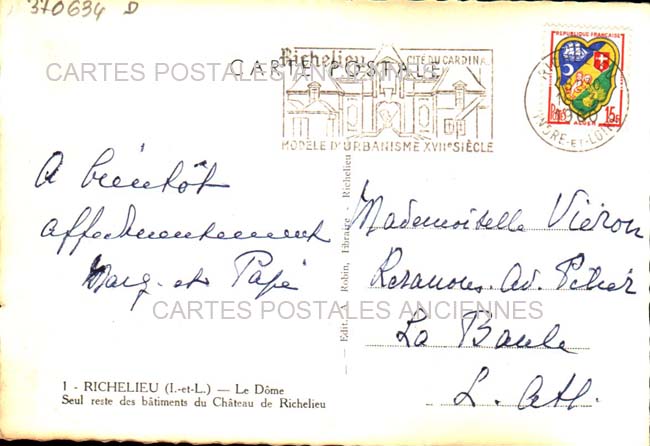 370634 D
CARTES POSTALES ANCIENNES
CARTE POSTALE
Richelieu
CITÉ DU CARDINAL
MODÈLE D'URBANISME XVIIe SIÈCLE
REPUBLIQUE FRANÇAISE
ALGER
15F
INDRE-ET-LOIRE
A bientôt
affectueusement
Marg. et Papé
Edit. A. Robin, Libraire - Richelieu
Mademoiselle Viéron
Av.
La Baule
L. Atl.
CARTES POSTALES ANCIENNES
1 - RICHELIEU (I.-et-L.) — Le Dôme
Seul reste des bâtiments du Château de Richelieu